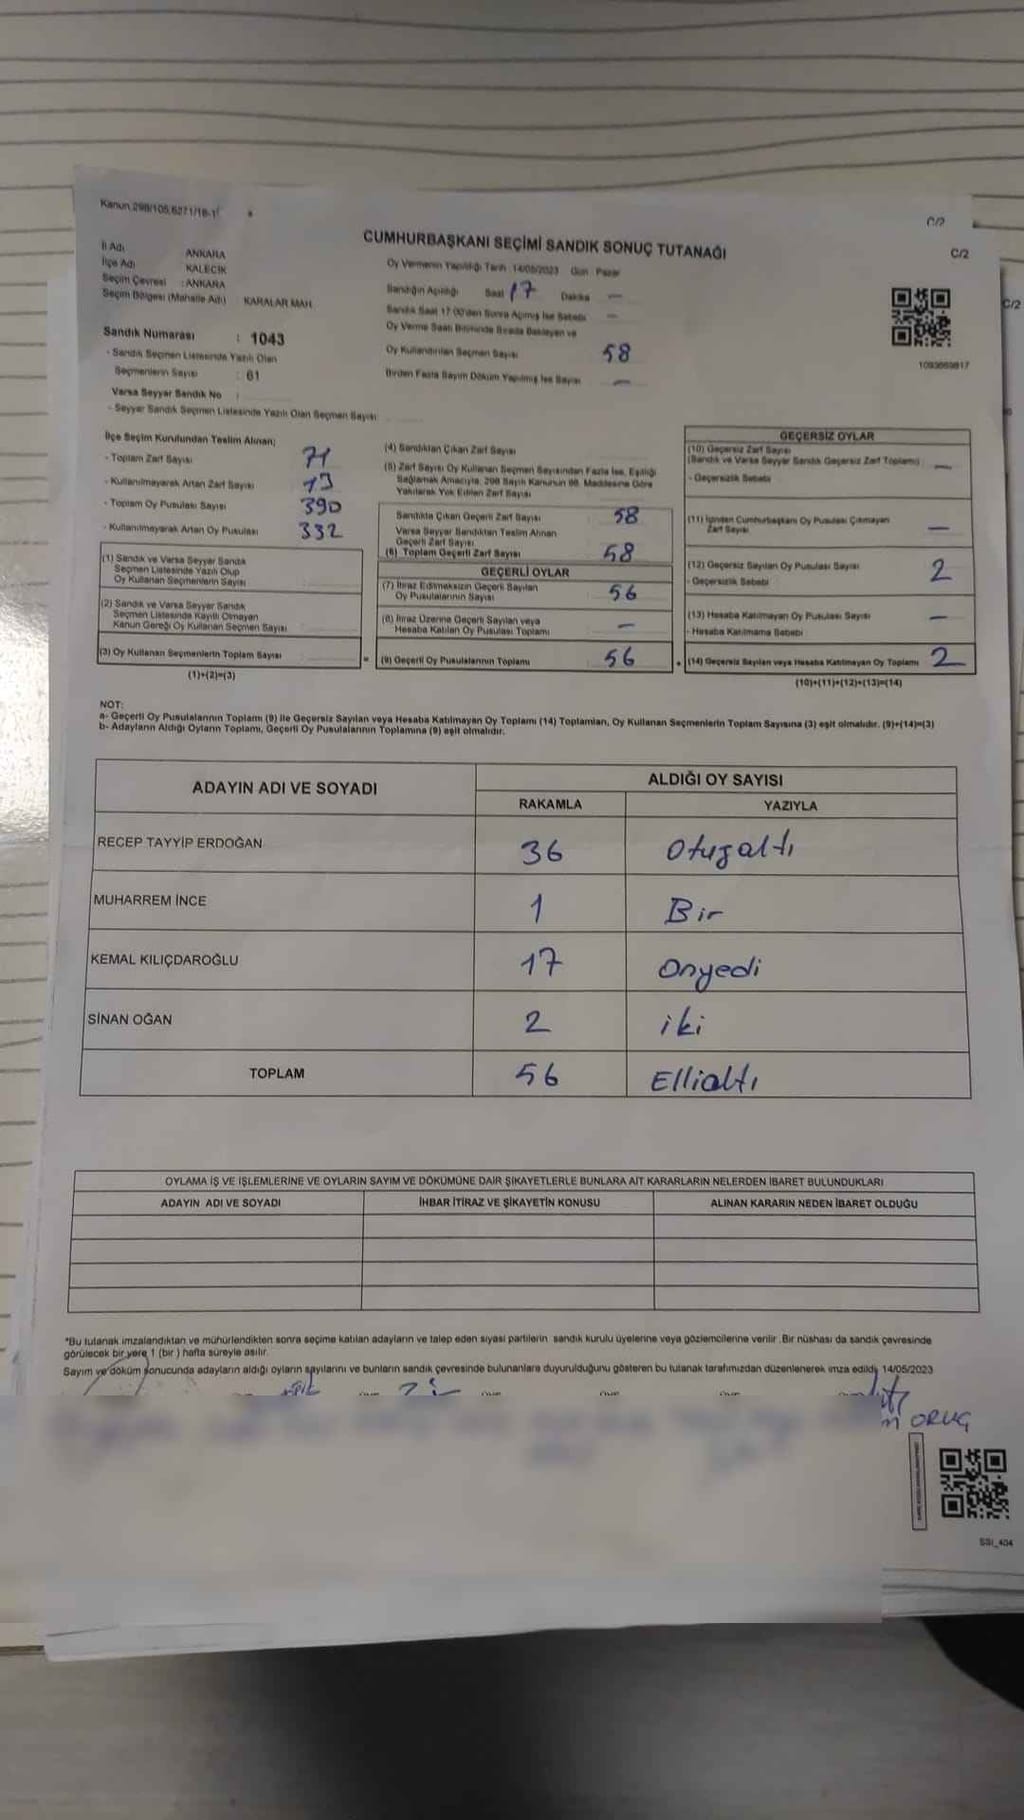 Kanun 298/105,6271/16-1
C/2
C/2
C/2
CUMHURBAŞKANI SEÇİMİ SANDIK SONUÇ TUTANAĞI
İl Adı ANKARA
İlçe Adı KALECİK
Seçim Çevresi : ANKARA
Seçim Bölgesi (Mahalle Adı) KARALAR MAH.
Oy Vermenin Yapıldığı Tarih 14/05/2023 Gün Pazar
Sandığın Açıldığı Saat 17 Dakika —
Sandık Saat 17:00'den Sonra Açmış İse Sebebi —
Oy Verme Saati Bitiminde Sırada Bekleyen ve
Oy Kullandırılan Seçmen Sayısı 58
Birden Fazla Sayım Döküm Yapılmış İse Sayısı —
1093669817
Sandık Numarası : 1043
- Sandık Seçmen Listesinde Yazılı Olan
Seçmenlerin Sayısı : 61
Varsa Seyyar Sandık No :
- Seyyar Sandık Seçmen Listesinde Yazılı Olan Seçmen Sayısı
İlçe Seçim Kurulundan Teslim Alınan;
- Toplam Zarf Sayısı 71
- Kullanılmayarak Artan Zarf Sayısı 13
- Toplam Oy Pusulası Sayısı 390
- Kullanılmayarak Artan Oy Pusulası 332
(1) Sandık ve Varsa Seyyar Sandık
Seçmen Listesinde Yazılı Olup
Oy Kullanan Seçmenlerin Sayısı
(2) Sandık ve Varsa Seyyar Sandık
Seçmen Listesinde Kayıtlı Olmayan
Kanun Gereği Oy Kullanan Seçmen Sayısı
(3) Oy Kullanan Seçmenlerin Toplam Sayısı
(1)+(2)=(3)
(4) Sandıktan Çıkan Zarf Sayısı
(5) Zarf Sayısı Oy Kullanan Seçmen Sayısından Fazla İse, Eşitliği
Sağlamak Amacıyla, 298 Sayılı Kanunun 98. Maddesine Göre
Yakılarak Yok Edilen Zarf Sayısı
Sandıkta Çıkan Geçerli Zarf Sayısı 58
Varsa Seyyar Sandıktan Teslim Alınan
Geçerli Zarf Sayısı
(6) Toplam Geçerli Zarf Sayısı 58
GEÇERLİ OYLAR
(7) İtiraz Edilmeksizin Geçerli Sayılan
Oy Pusulalarının Sayısı 56
(8) İtiraz Üzerine Geçerli Sayılan veya
Hesaba Katılan Oy Pusulası Toplamı —
= (9) Geçerli Oy Pusulalarının Toplamı 56
GEÇERSİZ OYLAR
(10) Geçersiz Zarf Sayısı
(Sandık ve Varsa Seyyar Sandık Geçersiz Zarf Toplamı) —
- Geçersizlik Sebebi
(11) İçinden Cumhurbaşkanı Oy Pusulası Çıkmayan
Zarf Sayısı —
(12) Geçersiz Sayılan Oy Pusulası Sayısı 2
- Geçersizlik Sebebi
(13) Hesaba Katılmayan Oy Pusulası Sayısı —
- Hesaba Katılmama Sebebi
+ (14) Geçersiz Sayılan veya Hesaba Katılmayan Oy Toplamı 2
(10)+(11)+(12)+(13)=(14)
NOT:
a- Geçerli Oy Pusulalarının Toplamı (9) ile Geçersiz Sayılan veya Hesaba Katılmayan Oy Toplamı (14) Toplamları, Oy Kullanan Seçmenlerin Toplam Sayısına (3) eşit olmalıdır. (9)+(14)=(3)
b- Adayların Aldığı Oyların Toplamı, Geçerli Oy Pusulalarının Toplamına (9) eşit olmalıdır.
ADAYIN ADI VE SOYADI
ALDIĞI OY SAYISI
RAKAMLA YAZIYLA
RECEP TAYYİP ERDOĞAN 36 Otuzaltı
MUHARREM İNCE 1 Bir
KEMAL KILIÇDAROĞLU 17 Onyedi
SİNAN OĞAN 2 iki
TOPLAM 56 Ellialtı
OYLAMA İŞ VE İŞLEMLERİNE VE OYLARIN SAYIM VE DÖKÜMÜNE DAİR ŞİKAYETLERLE BUNLARA AİT KARARLARIN NELERDEN İBARET BULUNDUKLARI
ADAYIN ADI VE SOYADI İHBAR İTİRAZ VE ŞİKAYETİN KONUSU ALINAN KARARIN NEDEN İBARET OLDUĞU
*Bu tutanak imzalandıktan ve mühürlendikten sonra seçime katılan adayların ve talep eden siyasi partilerin sandık kurulu üyelerine veya gözlemcilerine verilir. Bir nüshası da sandık çevresinde
görülecek bir yere 1 (bir ) hafta süreyle asılır.
Sayım ve döküm sonucunda adayların aldığı oyların sayılarını ve bunların sandık çevresinde bulunanlara duyurulduğunu gösteren bu tutanak tarafımızdan düzenlenerek imza edildi. 14/05/2023
ORUÇ
SSI_404